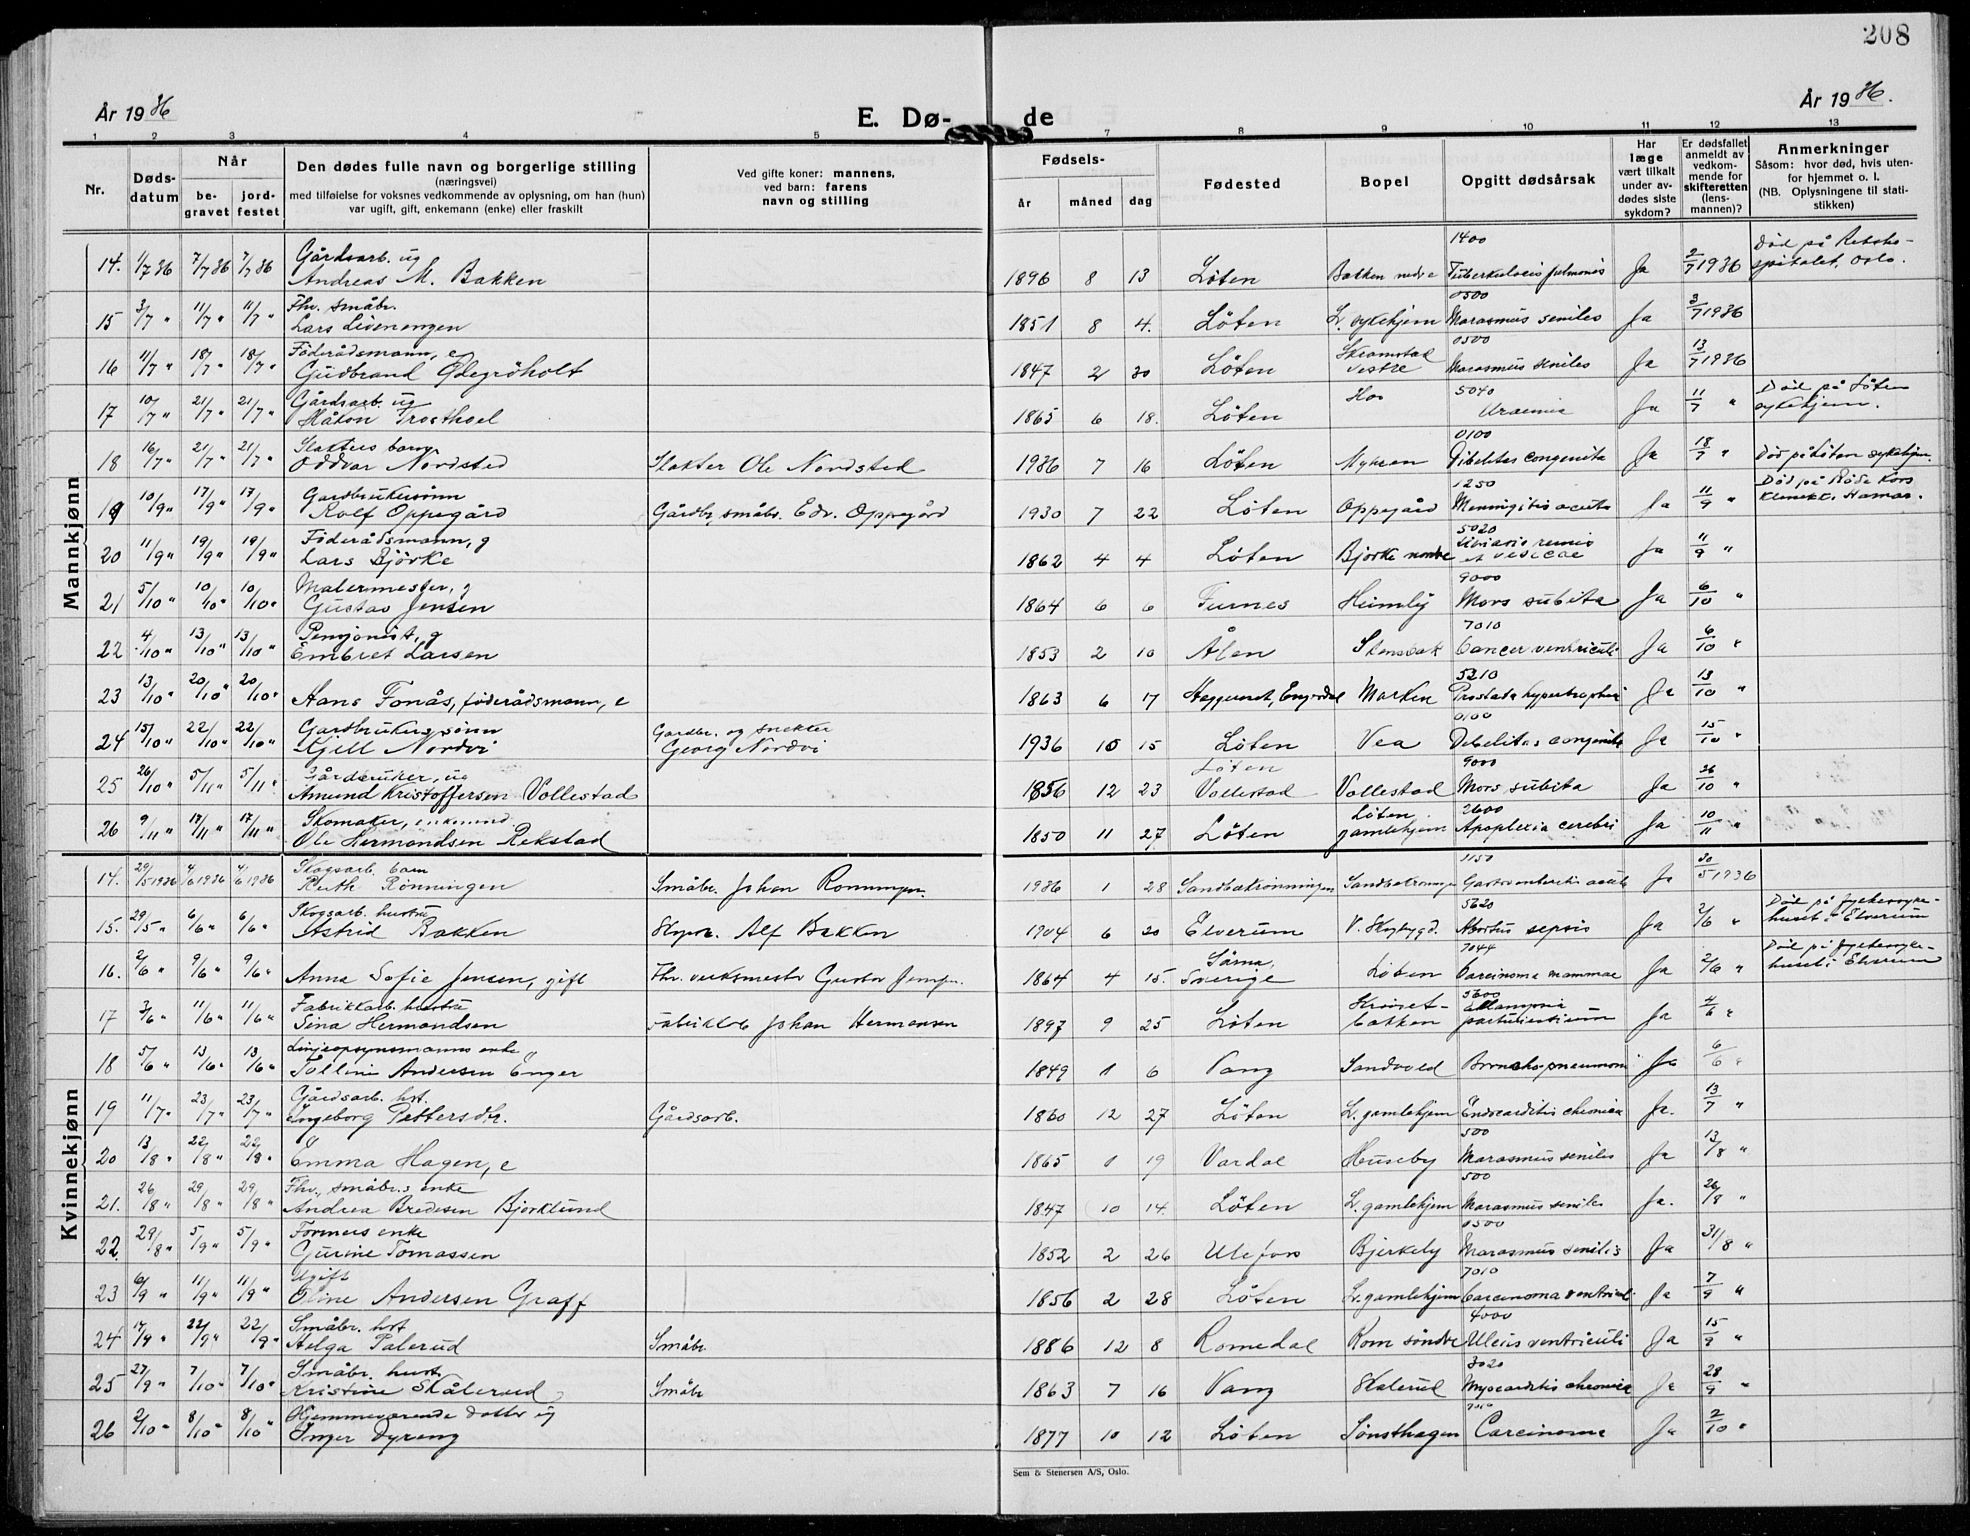 208
År 1936
E. Dø-
de
År 1936.
1 2 3 4 5 7 8 9 10 11 12 13
Nr.
Døds-
datum
Når
be-
gravet
jord-
festet
Den dødes fulle navn og borgerlige stilling
(næringsvei)
med tilføielse for voksnes vedkommende av oplysning, om han (hun)
var ugift, gift, enkemann (enke) eller fraskilt
Ved gifte koner: mannens,
ved barn: farens
navn og stilling
Fødsels-
år måned dag
Fødested
Bopel
Opgitt dødsårsak
Har
læge
vært tilkalt
under av-
dødes siste
sykdom?
Er dødsfallet
anmeldt av
vedkom-
mende for
skifteretten
(lens-
mannen)?
Anmerkninger
Såsom: hvor død, hvis uten-
for hjemmet o. l.
(NB. Oplysningene til stati-
stikken)
Mannkjønn
Gårdsarb. ug 1400 Død på Riksho-
14. 1/7 36 7/7 36 7/7 36 Andreas M. Bakken 1896 8 13 Løten Bakken nedre Tuberkulosis pulmonis Ja 2/7 1936 spitalet, Oslo.
Fhv. småbr. 0500
15 3/7 " 11/7 " 11/7 " Lars Livenengen 1851 8 4. Løten L. sykehjem Marasmus seniles Ja 3/7 1936
Föderådsmann, e Skramstad 0500
16 11/7 " 18/7 " 18/7 " Gudbrand Ødegröholt 1847 2 20 Løten Vestre Marasmus seniles Ja 13/7 1936
Gårdsarb. ug Hoo 5040 Død på Løten
17 10/7 " 21/7 " 21/7 " Håkon Trosthoel 1865 6 18. Løten Uraemia Ja 11/7 " sykehjem.
Slakters barn 0100
18 16/7 " 21/7 " 21/7 " Oddvar Nordsted Slakter Ole Nordsted 1936 7 16 Løten Myhren Dibelitas congenita Ja 18/7 " Død på Løten sykehjem.
Gardbrukersønn 1250 Død på Røde Kors
19 10/9 " 17/9 " 17/9 " Rolf Oppegård Gårdbr, småbr. Edv. Oppegård 1930 7 22 Løten Oppegård Meningitis acuta Ja 11/9 " klinikk, Hamar.
Föderådsmann, g 5020
20 11/9 " 19/9 " 19/9 " Lars Björke 1862 4 4 Løten Bjørke nordre et vesicae Ja 11/9 "
Malermester, g 9000
21 5/10 " 10/10 " 10/10 " Gustav Jensen 1864 6 6 Furnes Heimly Mors subita Ja 6/10 "
Pensjonist, g 7010
22 4/10 " 13/10 " 13/10 " Embret Larsen 1853 2 10 Ålen Stensbak Cancer ventriculi Ja 6/10 "
5210
23 13/10 " 20/10 " 20/10 " Hans Fonås, föderådsmann, e 1863 6 17 Heggeneset, Engerdal Marken Prostata hypertrophia Ja 13/10 "
Gardbrukerssønn Gardbr. og snekker 0100
24 15/10 " 22/10 " 22/10 " Kjell Nordvi Georg Nordvi 1936 10 15 Løten Vea Debelitas congenita Ja 15/10 "
Gårdbruker, ug Løten 9000
25 26/10 " 5/11 " 5/11 " Amund Kristoffersen Vollestad 1856 12 23 Vollestad Vollestad Mors subita Ja 26/10 "
Skomaker, enkemand Løten 2600
26 9/11 " 17/11 " 17/11 " Ole Hermondsen Rekstad 1850 11 27 Løten gamlehjem Apoplexia cerebri Ja 10/11 "
Kvinnekjønn
Skogsarb. barn 1150
14. 29/5 1936 4/6 1936 4/6 1936 Ruth Rønningen Småbr. Johan Rønningen 1936 1 28 Sandbækrønningen Sandbækrønningen Gastroenteritis acuta Ja 30/5 1936
Skogsarb. hustru 5620 Død på fylkessyke-
15. 29/5 " 6/6 " 6/6 " Astrid Bakken Alf Bakken 1904 6 20 Elverum V. Skogbygd. Abortus sepsis Ja 2/6 " huset i Elverum
Särna, 7044 Død på fylkessyke-
16. 2/6 " 9/6 " 9/6 " Anna Sofie Jensen, gift Fhv. verksmester Gustav Jensen. 1864 4 15. Sverige Løten Carcinoma mammae Ja 2/6 " huset i Elverum
Fabrikkarb. hustru Krøset- 5600
17 3/6 " 11/6 " 11/6 " Sina Hermondsen Fabrikkarb Johan Hermansen 1897 9 25 Løten bakken parturientium Ja 4/6 "
Linjeopsynsmanns enke
18 5/6 " 13/6 " 13/6 " Talline Andersen Enger 1849 1 6 Vang Sandvold Bronchopneumoni Ja 6/6 "
Gårdsarb. hst.
19 11/7 " 23/7 " 23/7 " Ingeborg Pettersdtr. Gårdsarb. 1860 12 27 Løten L. gamlehjem Endocarditis chronica Ja. 13/7 "
500
20 13/8 " 22/8 " 22/8 " Emma Hagen, e 1865 1 19 Vardal Huseby Marasmus seniles Ja 13/8 "
Fhv. småbr.s enke 500
21. 26/8 " 29/8 " 29/8 " Andrea Bredesen Bjørklund 1847 10 14. Løten L. gamlehjem Marasmus seniles Ja. 26/8 "
Formers enke 0500
22. 29/8 " 5/9 " 5/9 " Gurine Tomassen 1852 2 26 Ulefoss Bjerkely Marasmus senilis Ja 31/8 "
Ugift 7010
23 6/9 " 11/9 " 11/9 " Oline Andersen Graff 1856 2 28 Løten L. gamlehjem Carcinoma ventriculi Ja 7/9 "
Småbr. hst 4000
24 14/9 " 22/9 " 22/9 " Helga Palerud Småbr. 1886 12 8 Romedal Rom søndre Ulcus ventriculi Ja 15/9 "
Småbr. hust. 3020
25 27/9 " 7/10 " 7/10 " Kristine Skålerud Småbr 1863 7 16 Vang Skalerud Myocarditis chronica Ja 28/9 "
Hjemmeværende datter ug
26 2/10 " 8/10 " 8/10 " Inger Dyreng 1877 10 12 Løten Sønsthagen Carcinoma Ja 2/10 "
Sem & Stenersen A/S, Oslo.